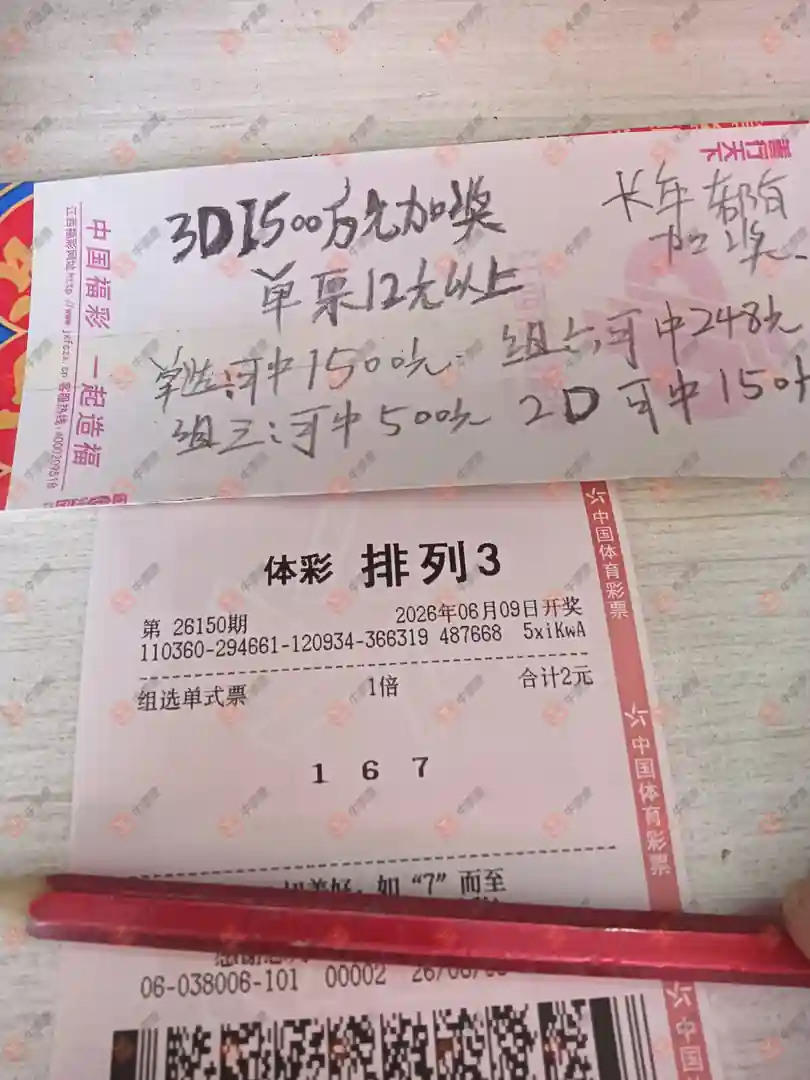 善行天下
3D1500万元加奖
长年都有
加奖
单票12元以上
单选:可中1500元
组六:可中248元
组三:可中500元
2D可中150
中国福彩 一起造福
江西福彩网址http://www.jxfczx.cn 客服热线:4000209518
体彩 排列3
第 26150期
2026年06月09日开奖
110360-294661-120934-366319 487668 5xiKwA
组选单式票
1倍
合计2元
1 6 7
如“7”而至
06-038006-101 00002
中国体育彩票
中国体育彩票
中国